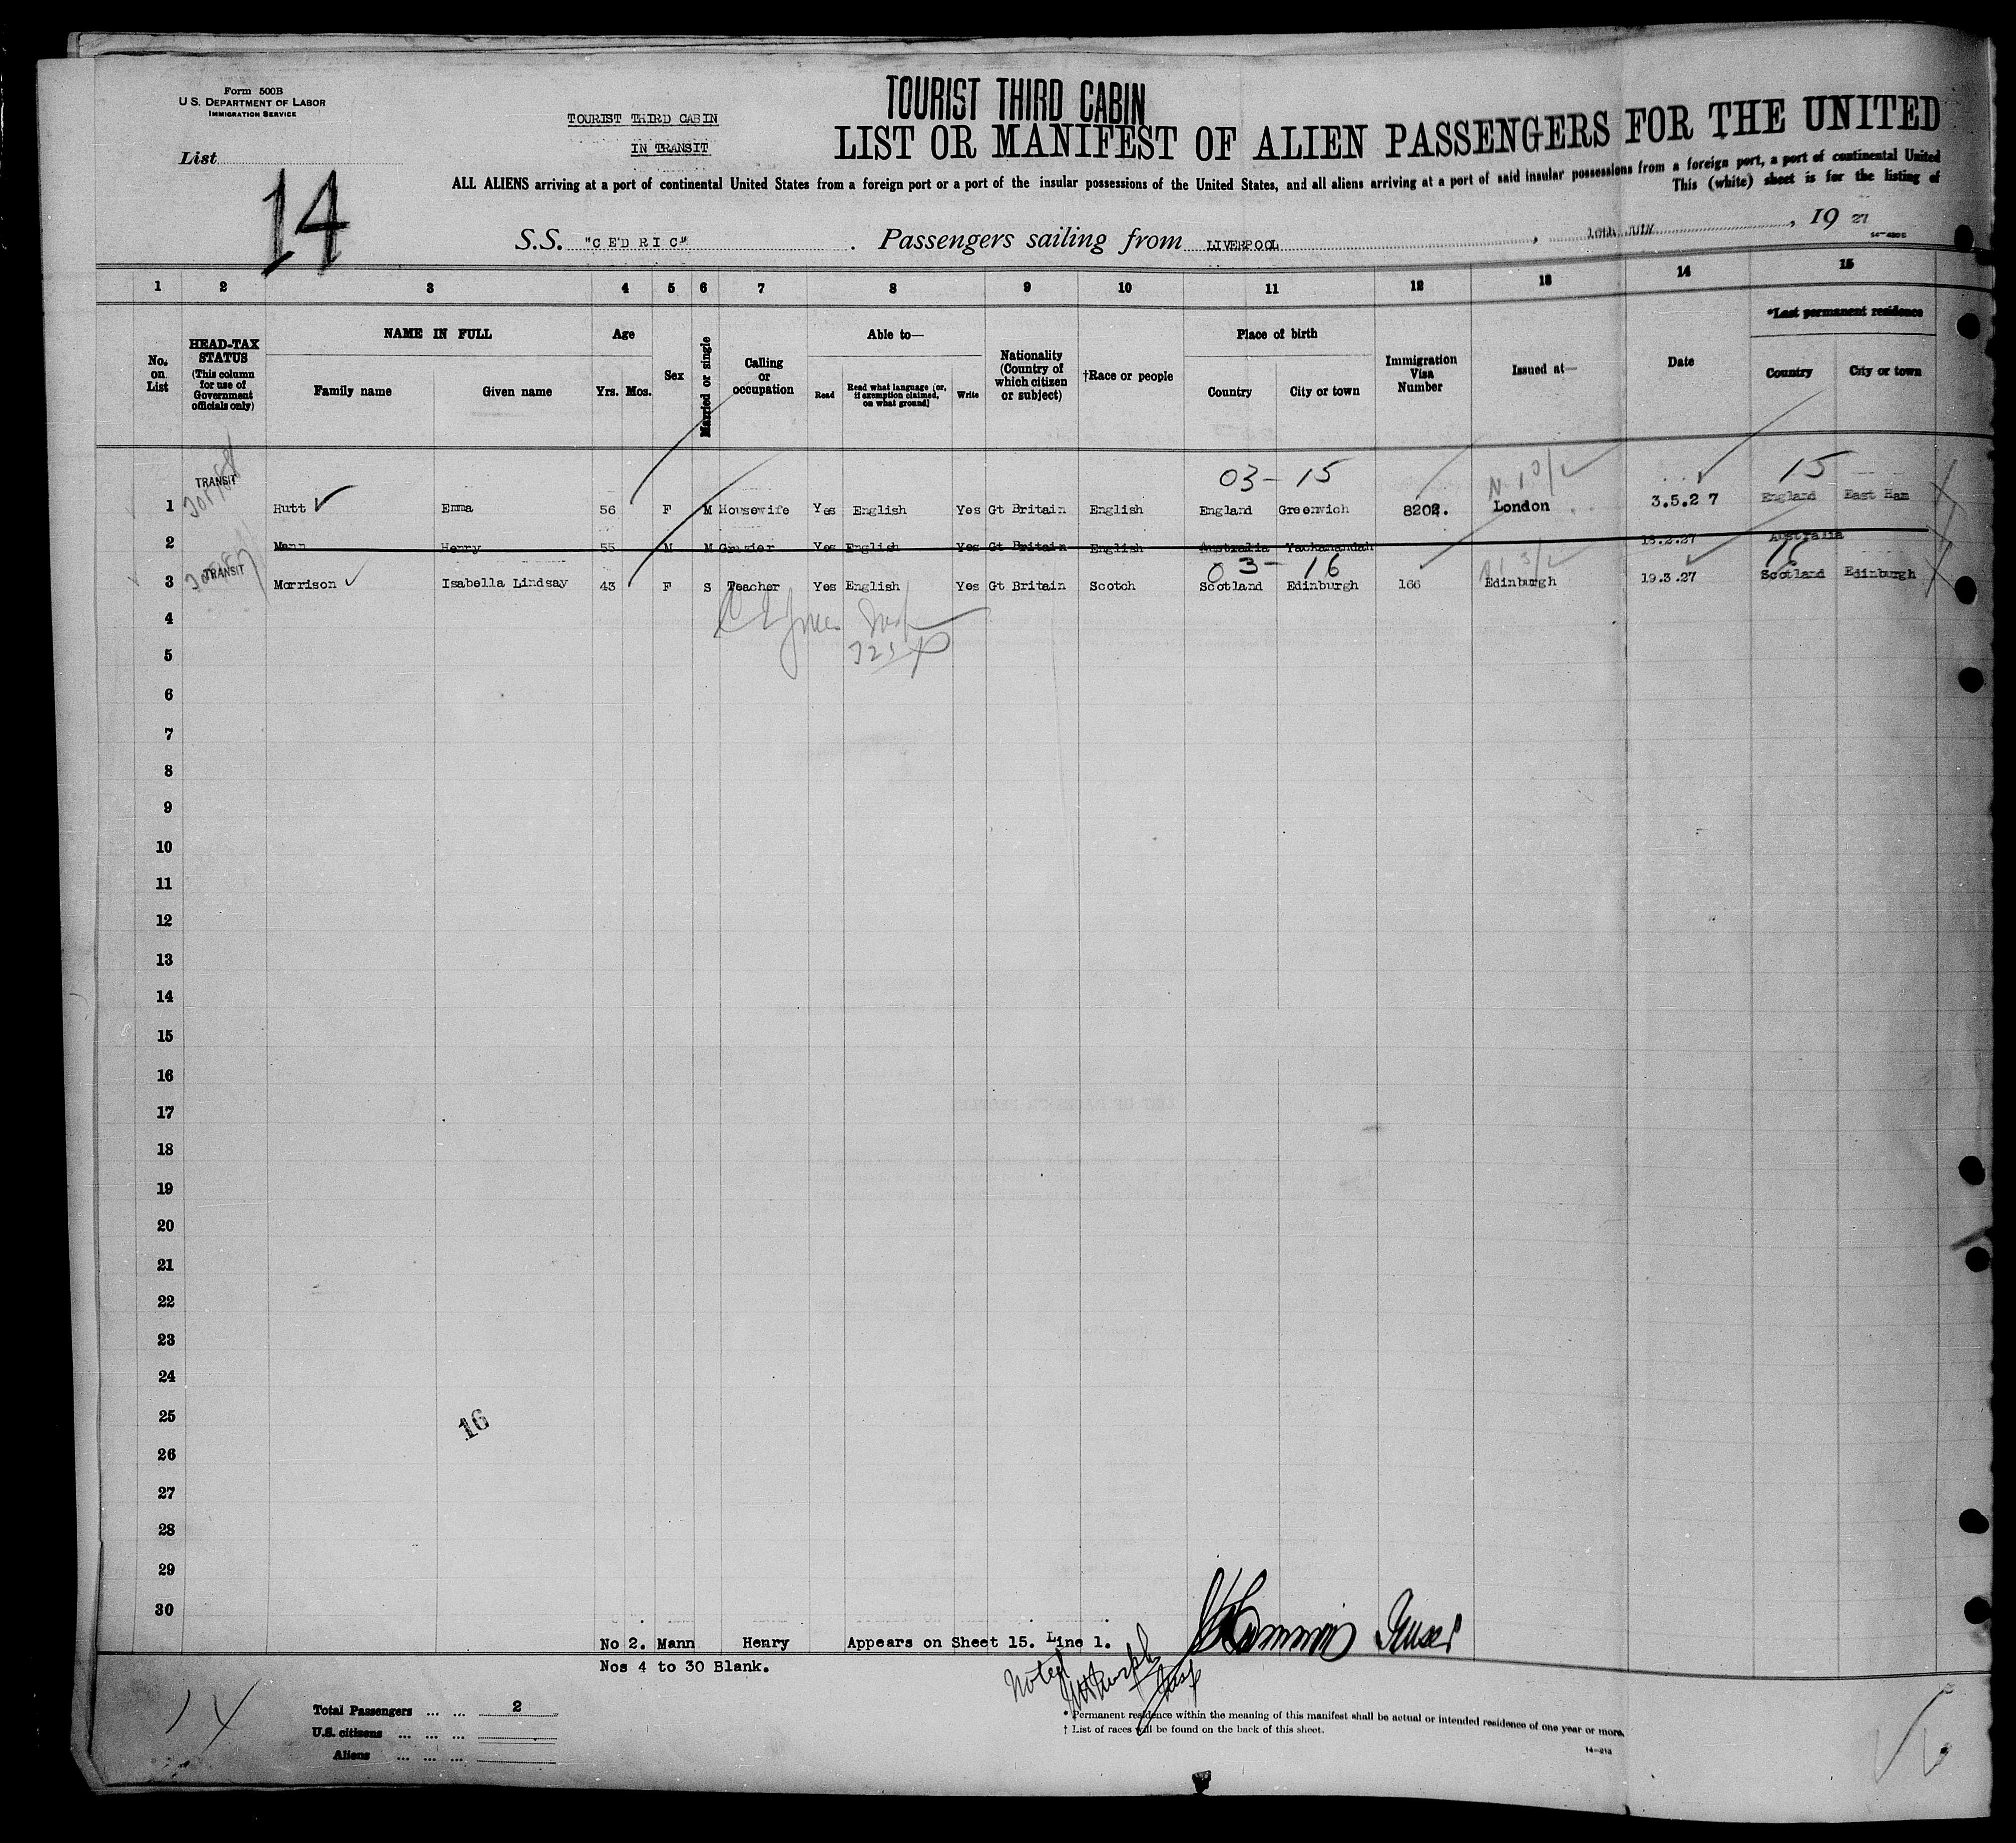 Form 500B
U.S. DEPARTMENT OF LABOR
IMMIGRATION SERVICE
List
14
TOURIST THIRD CABIN
IN TRANSIT
TOURIST THIRD CABIN
LIST OR MANIFEST OF ALIEN PASSENGERS FOR THE UNITED
ALL ALIENS arriving at a port of continental United States from a foreign port or a port of the insular possessions of the United States, and all aliens arriving at a port of said insular possessions from a foreign port, a port of continental United
This (white) sheet is for the listing of
S.S. "CEDRIC" . Passengers sailing from LIVERPOOL , JULY , 19 27
1 2 3 4 5 6 7 8 9 10 11 12 13 14 15
No. on List
HEAD-TAX STATUS (This column for use of Government officials only)
NAME IN FULL
Family name Given name
Age
Yrs. Mos.
Sex
Married or single
Calling or occupation
Able to—
Read Read what language [or, if exemption claimed, on what ground] Write
Nationality (Country of which citizen or subject)
†Race or people
Place of birth
Country City or town
Immigration Visa Number
Issued at—
Date
*Last permanent residence
Country City or town
03-15 15
1 TRANSIT Hutt Emma 56 F M Housewife Yes English Yes Gt Britain English England Greenwich 8202. London 3.5.27 England East Ham
2 Mann Henry 55 M M Grazier Yes English Yes Gt Britain English Australia Yackanandah 18.2.27 Australia
03-16 16
3 TRANSIT Morrison Isabella Lindsay 43 F S Teacher Yes English Yes Gt Britain Scotch Scotland Edinburgh 166 Edinburgh 19.3.27 Scotland Edinburgh
4
5
6
7
8
9
10
11
12
13
14
15
16
17
18
19
20
21
22
23
24
25
16
26
27
28
29
30
No 2. Mann Henry Appears on Sheet 15. Line 1.
Nos 4 to 30 Blank.
Noted
14
Total Passengers ... ... 2
U.S. citizens ... ... ...
Aliens ... ... ...
* Permanent residence within the meaning of this manifest shall be actual or intended residence of one year or more.
† List of races will be found on the back of this sheet.